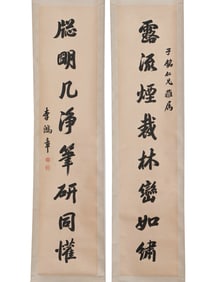 露流煙裁林巒如繡
子銘仁兄雅屬
牕明几淨筆研同懽
李鴻章